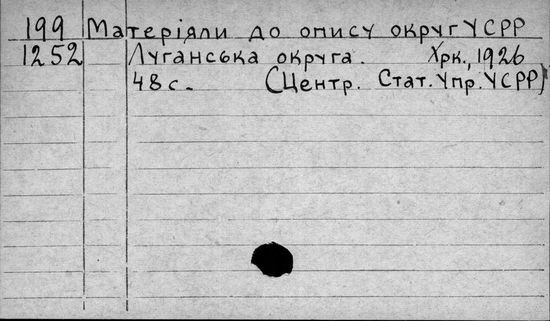 199 Матеріяли до опису округ УСРР
1252 Луганська округа. Хрк., 1926
48 с. (Центр. Стат. Упр. УСРР)